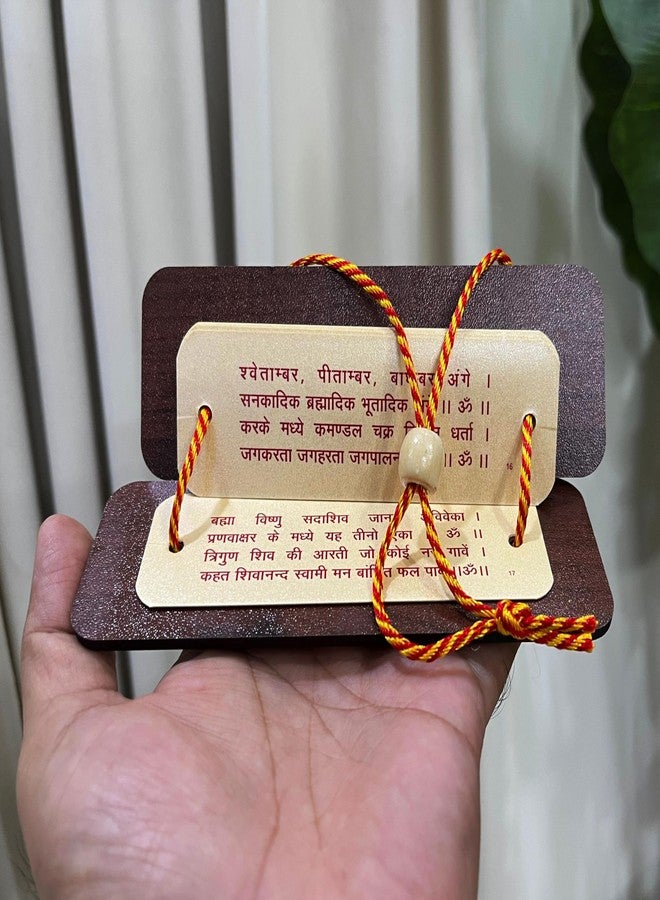 श्वेताम्बर, पीताम्बर, अंगे ।
सनकादिक ब्रह्मादिक भूतादिक ।। ॐ ।।
करके मध्ये कमण्डल चक्र धर्ता ।
जगकरता जगहरता ।। ॐ ।।
16
बह्मा विष्णु सदाशिव ।
प्रणवाक्षर के मध्ये यह तीनो ॐ ।।
त्रिगुण शिव की आरती जो कोई गावें ।
कहत शिवानन्द स्वामी मन फल ।।ॐ।।
17